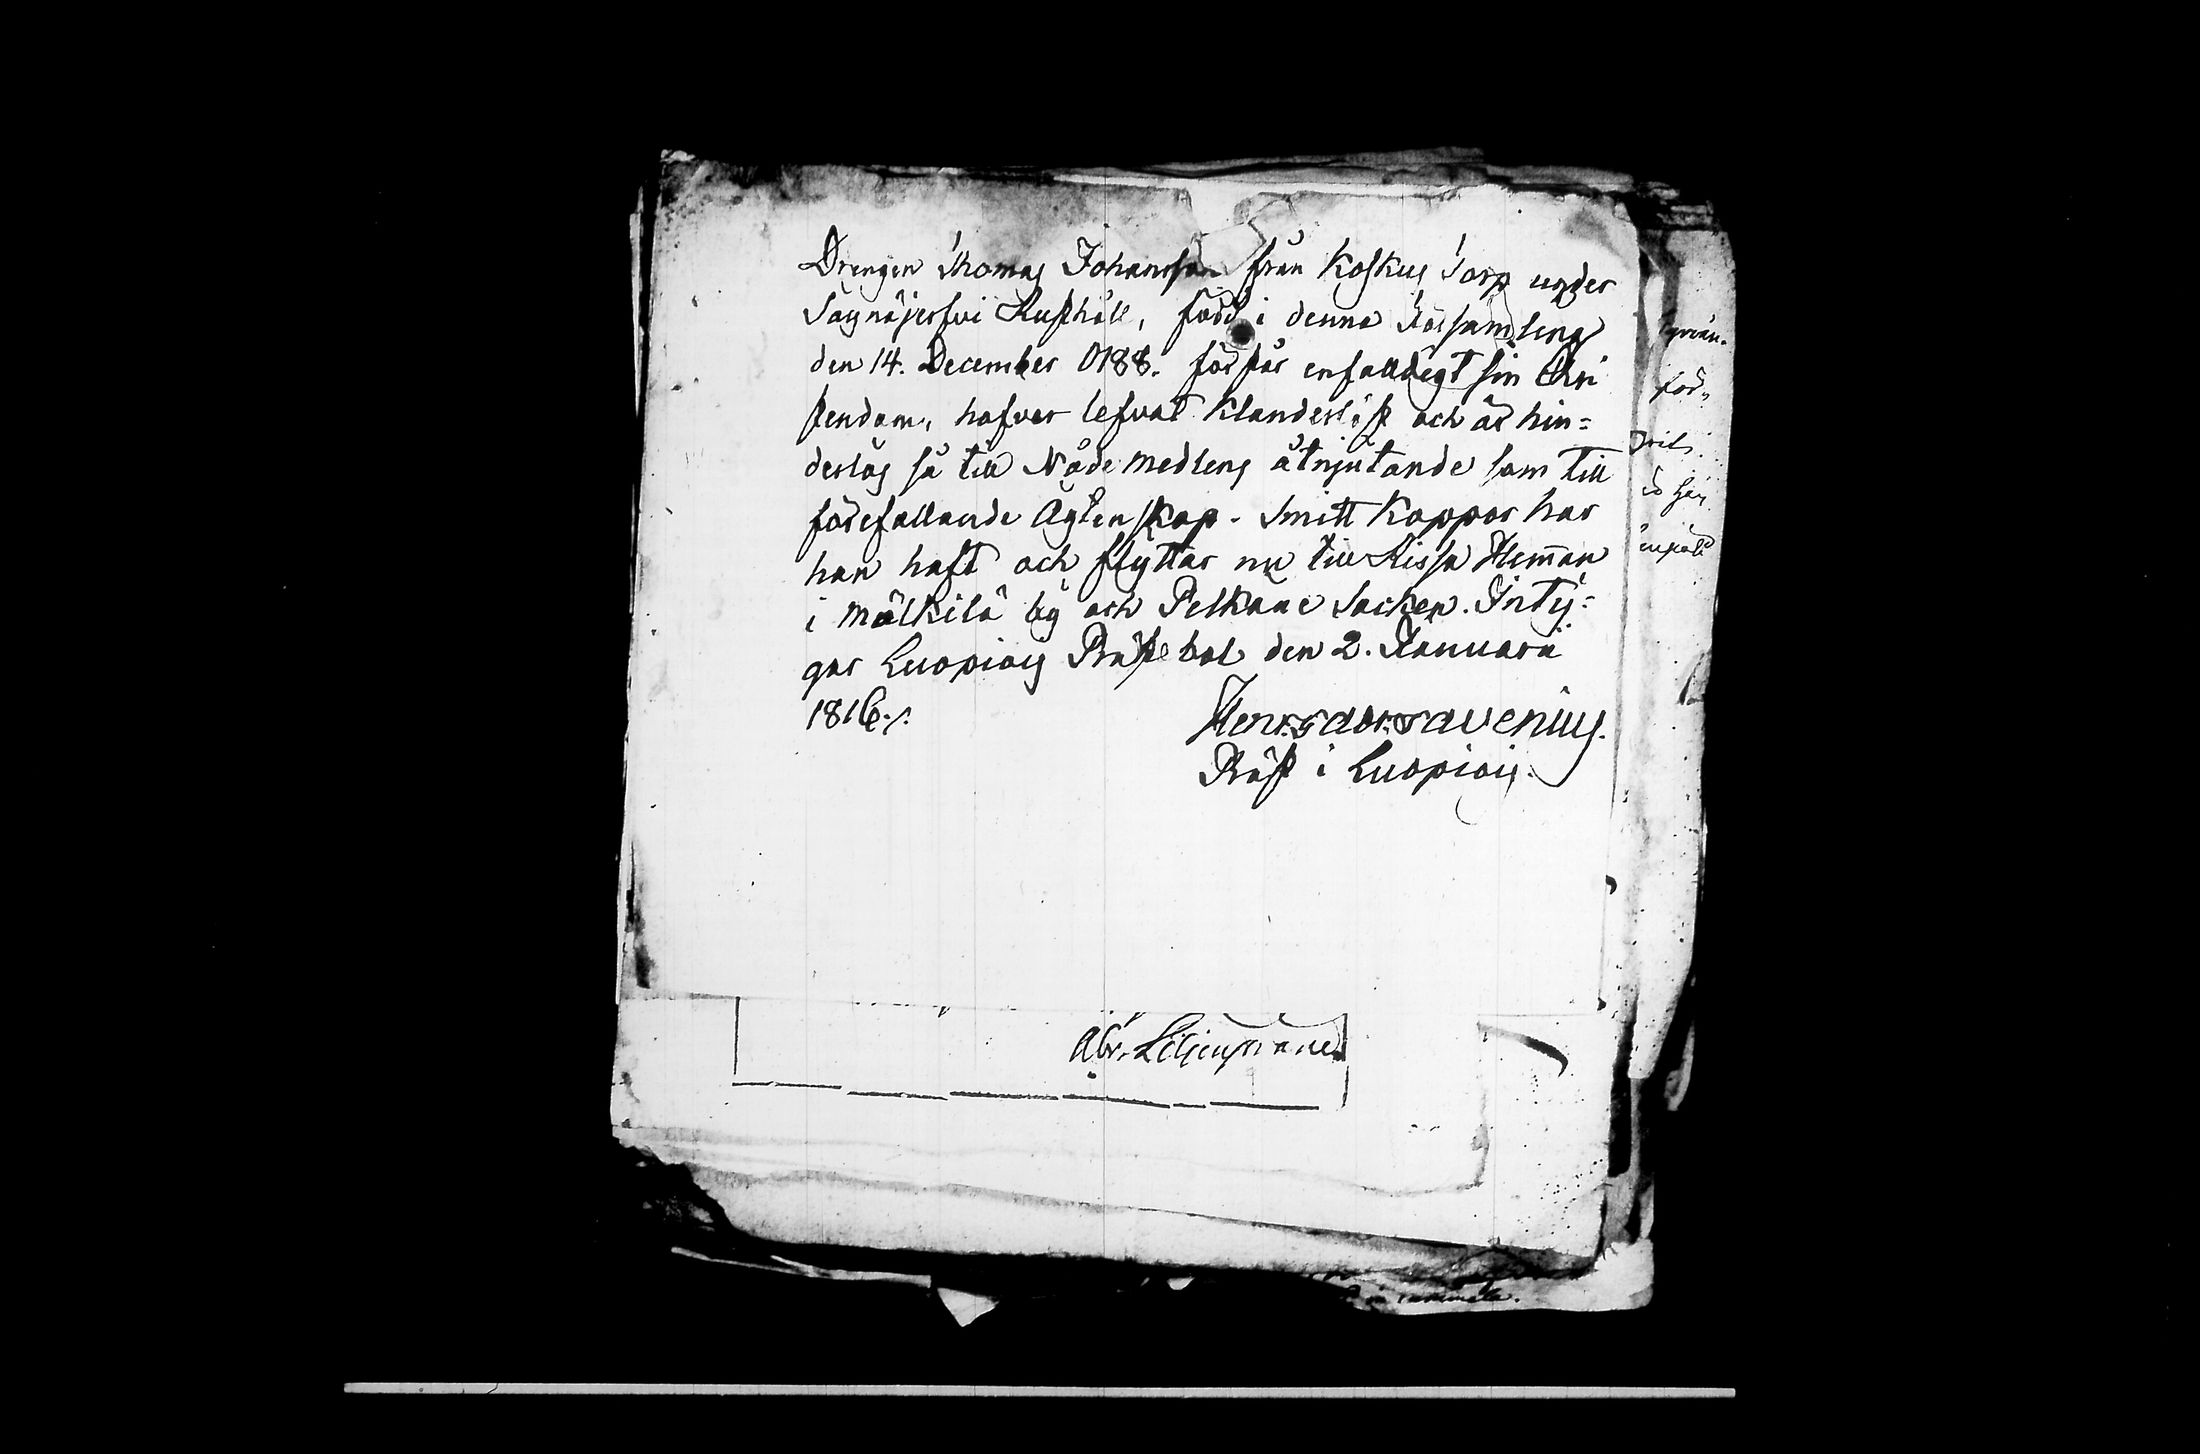 Drengen Thomas Johansson från Koskus Torp under
Saynäjerfvi Rusthåll, född i denna Församling
den 14. December 0188. förstår enfaldigt sin Chri
stendom, hafver lefvat Klanderlöst och är hin=
derlös så till Nåde medlens åtnjutande som till
förefallande Ägtenskap. Smitt Koppor har
han haft och flyttar nu till Rissa Heman
i Mälkilä by och Pelkäne Socken. Inty=
gar Luopiois Prästebol den 2. Januarii
1816./.
Henr. Gabr. Tavenius.
Präst i Luopiois.
föd=
Abr. Liljenstrand